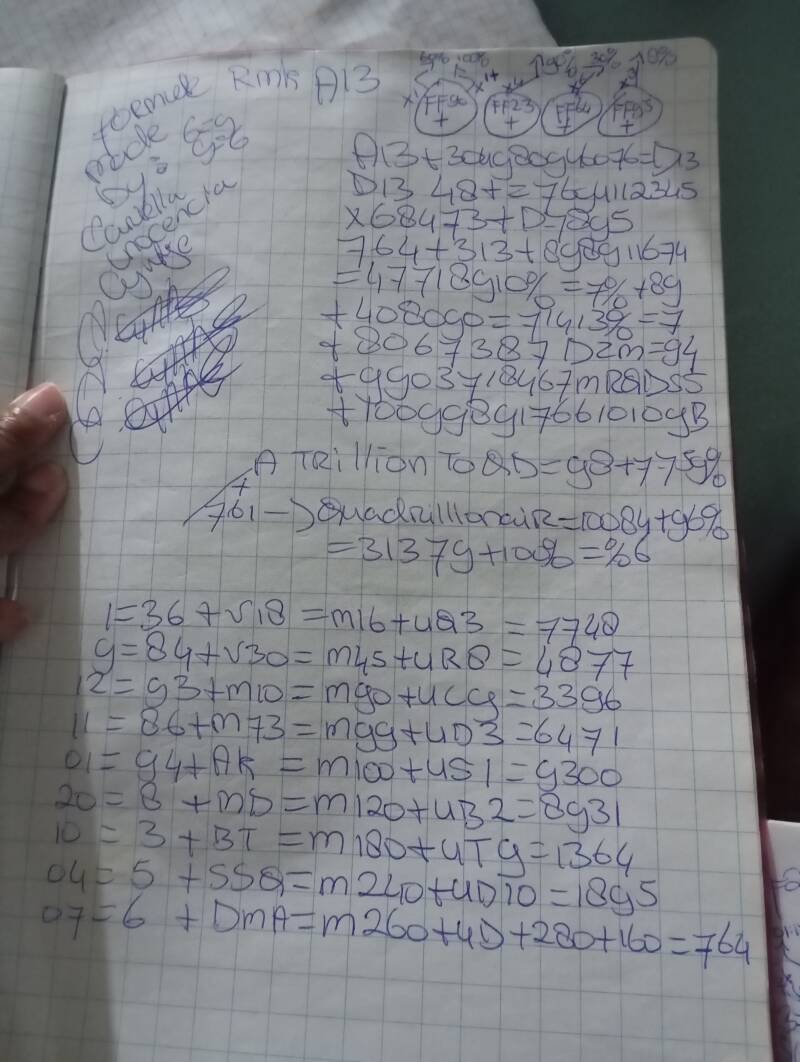 Rmk A13
made 6=9
by: 9=6
FF90 + FF23 + FF64 + FF95 +
A13+304980946076=D13
D13 48+=7694112345
x68473+D=7895
764+313+898911674
=47718910%=7%+89
+408090=71413%=7
+8067387 Dzm=94
+9903718467mRQDSS5
+1009989176610109B
A TRillion To QD=98+7759%
+
761 → QuadrillionaiR=10084+96%
=31379+100%=%6
1=36+V18=m16+4Q3=7748
9=84+V30=m45+4R8=4877
12=93+m10=m90+4C9=3396
11=86+m73=m99+4D3=6471
01=94+AK=m100+4S1=9300
20=8+MD=m120+4B2=8931
10=3+BT=m180+4T9=1364
04=5+SSQ=m240+4D10=1895
07=6+DmA=m260+4D+280+160=764